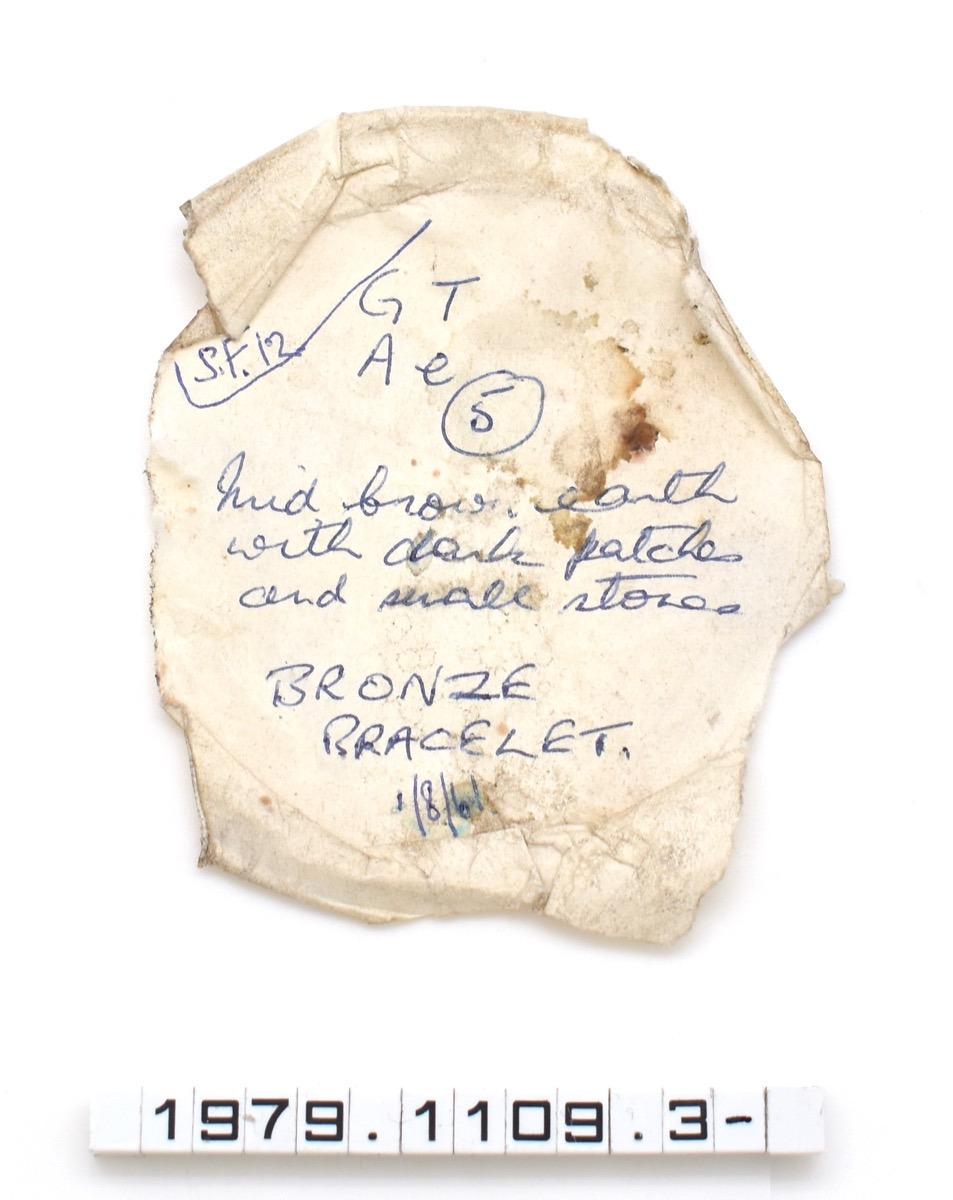 G T
S.F. 12
A e
5
Mid brown earth
with dark patches
and small stones
BRONZE
BRACELET.
1/8/61.
1979.1109.3-